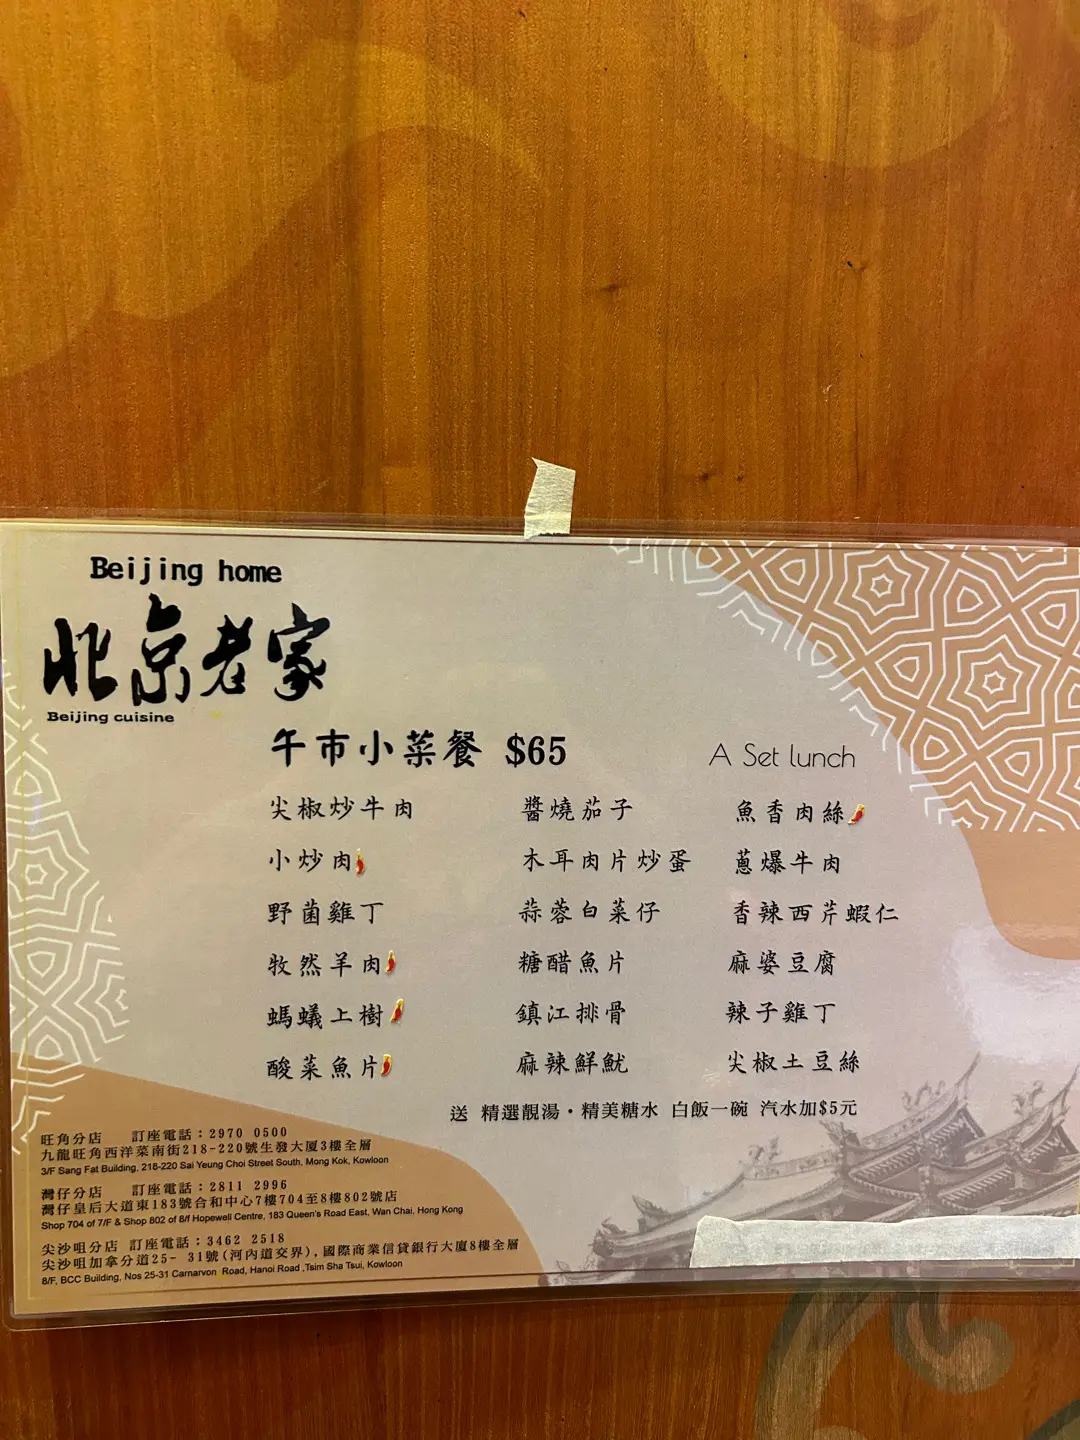 Beijing home
北京老家
Beijing cuisine
午市小菜餐 $65 A Set lunch
尖椒炒牛肉 醬燒茄子 魚香肉絲
小炒肉 木耳肉片炒蛋 蔥爆牛肉
野菌雞丁 蒜蓉白菜仔 香辣西芹蝦仁
牧然羊肉 糖醋魚片 麻婆豆腐
螞蟻上樹 鎮江排骨 辣子雞丁
酸菜魚片 麻辣鮮魷 尖椒土豆絲
送 精選靚湯・精美糖水 白飯一碗 汽水加$5元
旺角分店 訂座電話：2970 0500
九龍旺角西洋菜南街218-220號生發大厦3樓全層
3/F Sang Fat Building, 218-220 Sai Yeung Choi Street South, Mong Kok, Kowloon
灣仔分店 訂座電話：2811 2996
灣仔皇后大道東183號合和中心7樓704至8樓802號店
Shop 704 of 7/F & Shop 802 of 8/f Hopewell Centre, 183 Queen's Road East, Wan Chai, Hong Kong
尖沙咀分店 訂座電話：3462 2518
尖沙咀加拿分道25- 31號(河內道交界),國際商業信貸銀行大廈8樓全層
8/F, BCC Building, Nos 25-31 Carnarvon Road, Hanoi Road ,Tsim Sha Tsui, Kowloon